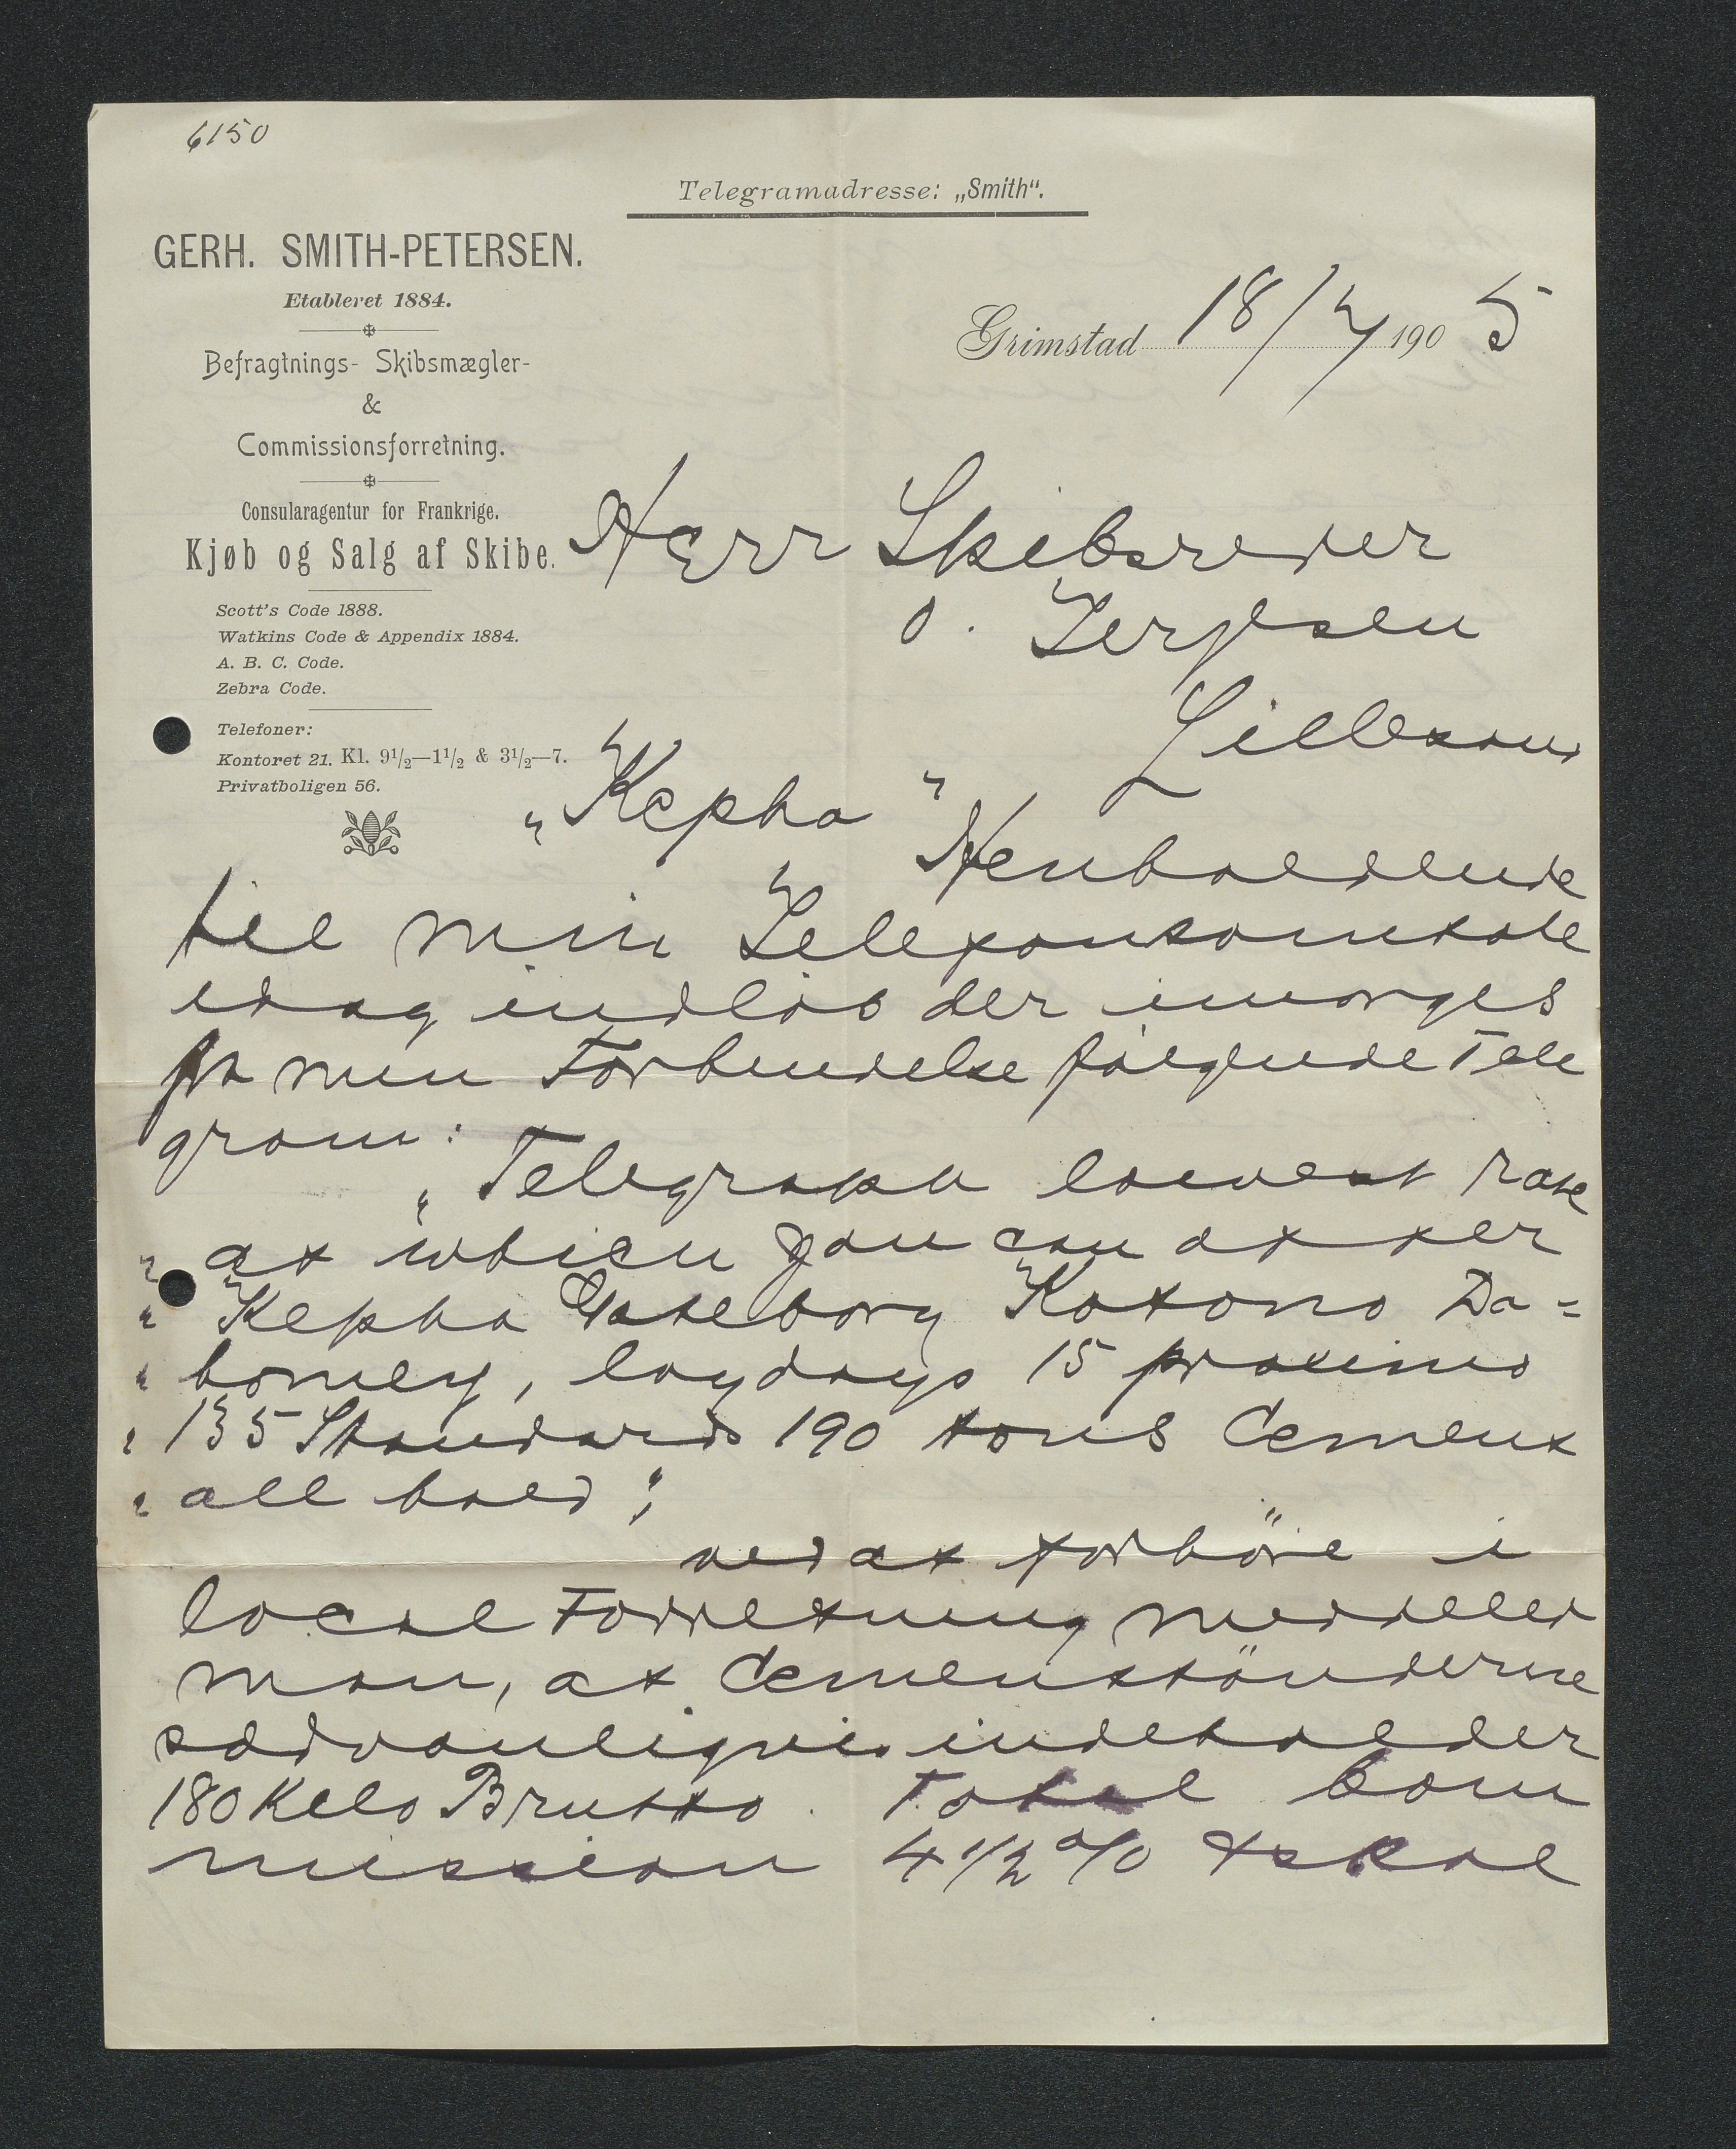 6150
Telegramadresse: „Smith“.
GERH. SMITH-PETERSEN.
Etableret 1884.
Befragtnings- Skibsmægler-
&
Commissionsforretning.
Consularagentur for Frankrige.
Kjøb og Salg af Skibe.
Scott's Code 1888.
Watkins Code & Appendix 1884.
A. B. C. Code.
Zebra Code.
Telefoner:
Kontoret 21. Kl. 9½—1½ & 3½—7.
Privatboligen 56.
Grimstad 18/4 1905
Herr Skibsreder
O. Terjesen
Lillesand
„Kepha"
Henholdende
til min Telefonsamtale
idag indløb der imorges
fra min Forbindelse følgende Tele
gram:
„Telegraph lowest rate
„ at which you can offer
„ Kepha Goteborg Kotono Da=
„ homey, laydays 15 proximo
„ 135 Standards 190 tons Cement
„ all hold";
ved at forhöre i
local Forretning meddeled
man, at Cementtönderne
sædvanligvis indeholder
180 Kilo Brutto. Total Com
mission 4 1/2 % skal